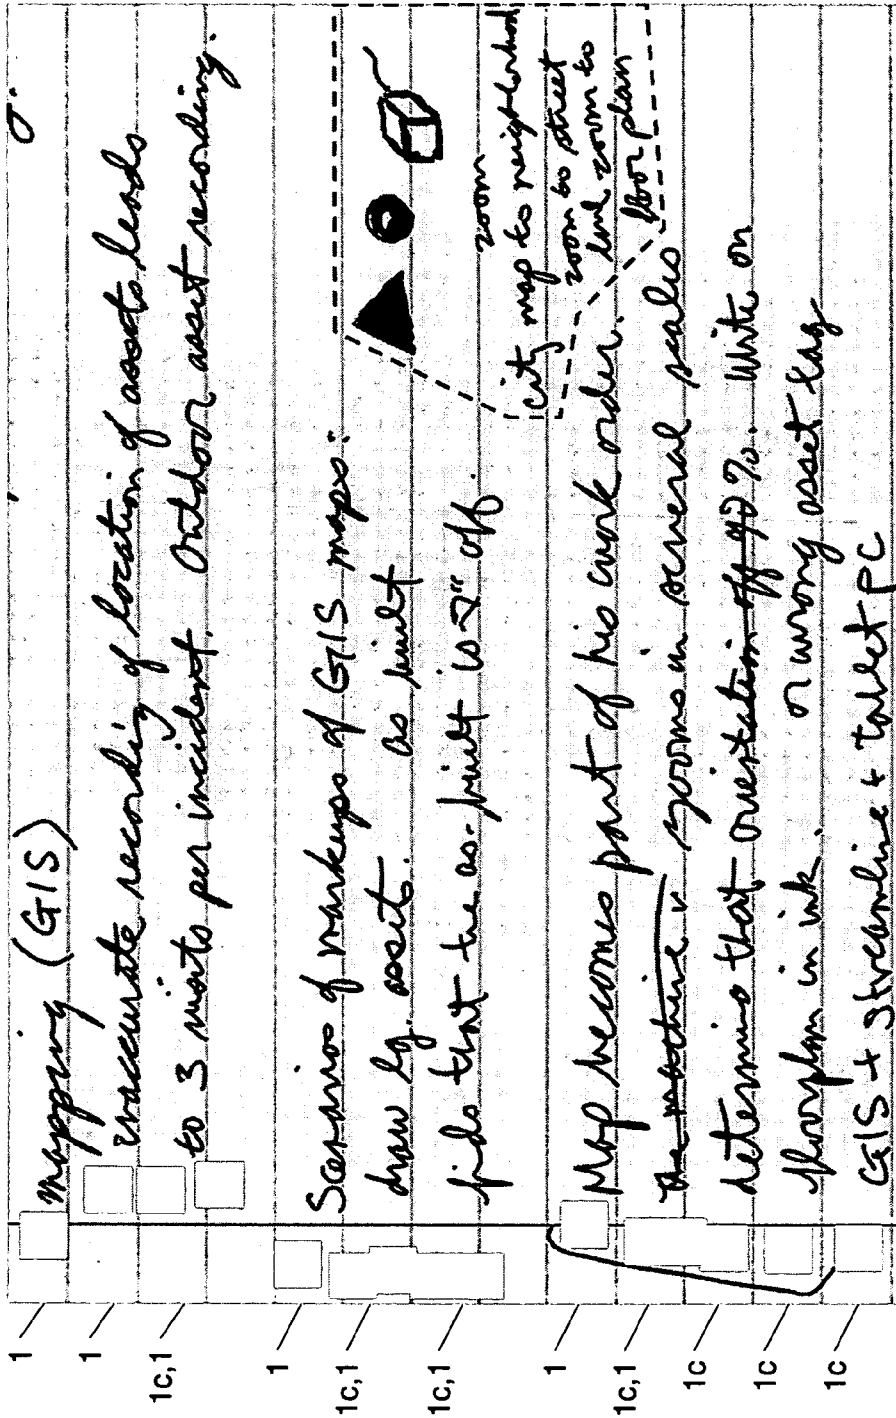 mapping (GIS)
inaccurate recording of location of assets leads
to 3 visits per incident. Outdoor asset recording.
Scenarios of markups of GIS maps:
draw lg. assets. as built
finds that the as-built is 2" off.
zoom
city map to neighborhood
zoom to street
and zoom to
floor plan
Map becomes part of his work order.
zooms in several scales
determins that orientation off 90%. write on
floorplan in ink. or wrong asset tag
GIS + Streamline + tablet PC
1
1
1c,1
1
1c,1
1c,1
1
1c,1
1c
1c
1c